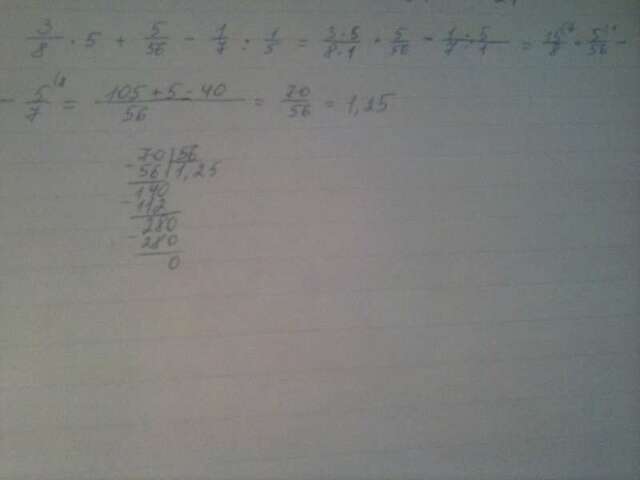 3/8 · 5 + 5/56 - 1/7 : 1/5 = 3·5/8·1 + 5/56 - 1·5/7·1 = 15/8 + 5/56 -
- 5/7 = 105+5-40/56 = 70/56 = 1,25
70 | 56
- 56 | 1,25
140
- 112
280
- 280
0